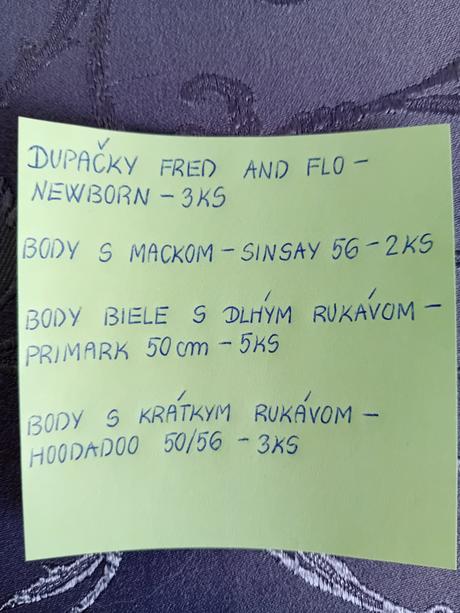 DUPAČKY FRED AND FLO –
NEWBORN – 3KS
BODY S MACKOM – SINSAY 56 – 2KS
BODY BIELE S DLHÝM RUKÁVOM –
PRIMARK 50 cm – 5KS
BODY S KRÁTKYM RUKÁVOM –
HOODADOO 50/56 – 3KS